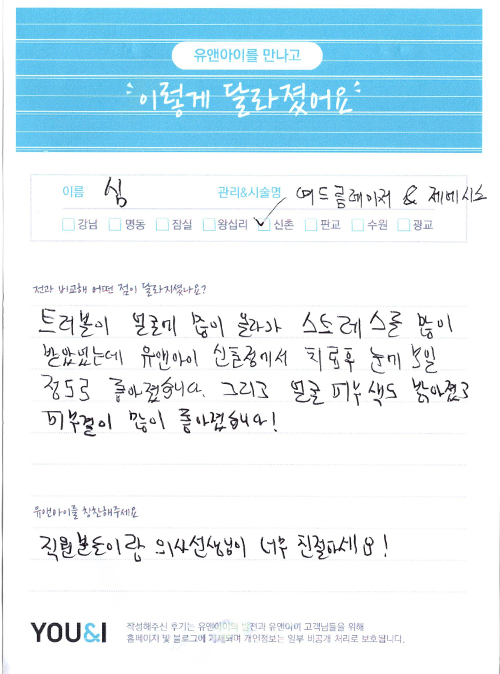 유앤아이를 만나고
"이렇게 달라졌어요"
이름 심 관리&시술명 여드름레이저 & 제네시스
강남 명동 잠실 왕십리 신촌 판교 수원 광교
전과 비교해 어떤 점이 달라지셨나요?
트러블이 얼굴에 많이 올라가 스트레스를 많이
받았었는데 유앤아이 신촌점에서 치료후 눈에 보일
정도로 좋아졌습니다. 그리고 얼굴 피부색도 밝아졌고
피부결이 많이 좋아졌습니다!
유앤아이를 칭찬해주세요
직원분들이랑 의사선생님이 너무 친절하세요!
YOU&I
작성해주신 후기는 유앤아이의 발전과 유앤아이 고객님들을 위해
홈페이지 및 블로그에 기재되며 개인정보는 일부 비공개 처리로 보호됩니다.